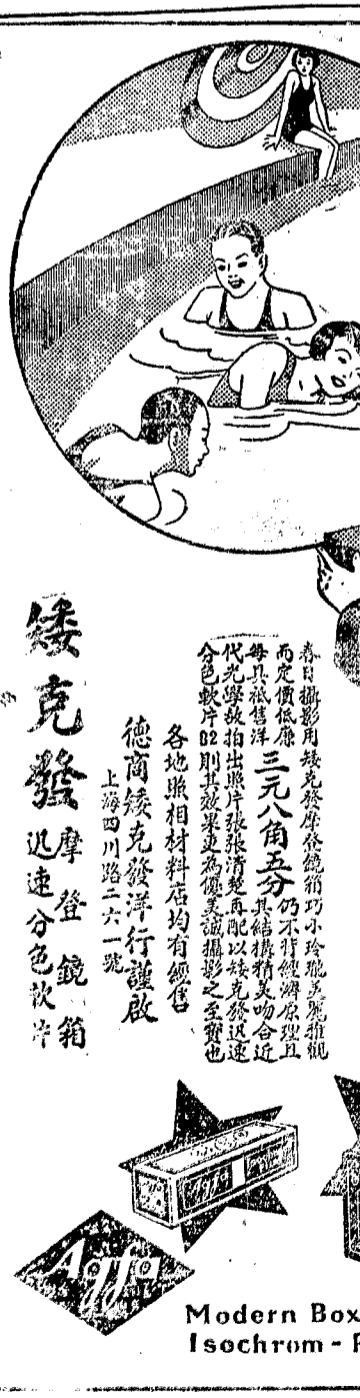 春日攝影用矮克發摩登鏡箱巧小玲瓏美麗雅觀
而定價低廉三元八角五分仍不背經濟原理且
每具祇售洋三元八角五分其結構精美吻合近
代光學故拍出照片張張清楚再配以矮克發迅速
分色軟片82則其效果更為優美誠攝影之至寶也
各地照相材料店均有經售
德商矮克發洋行謹啟
上海四川路二六一號
矮克發
摩登鏡箱
迅速分色軟片
Agfa
Agfa
Modern Box
Isochrom-